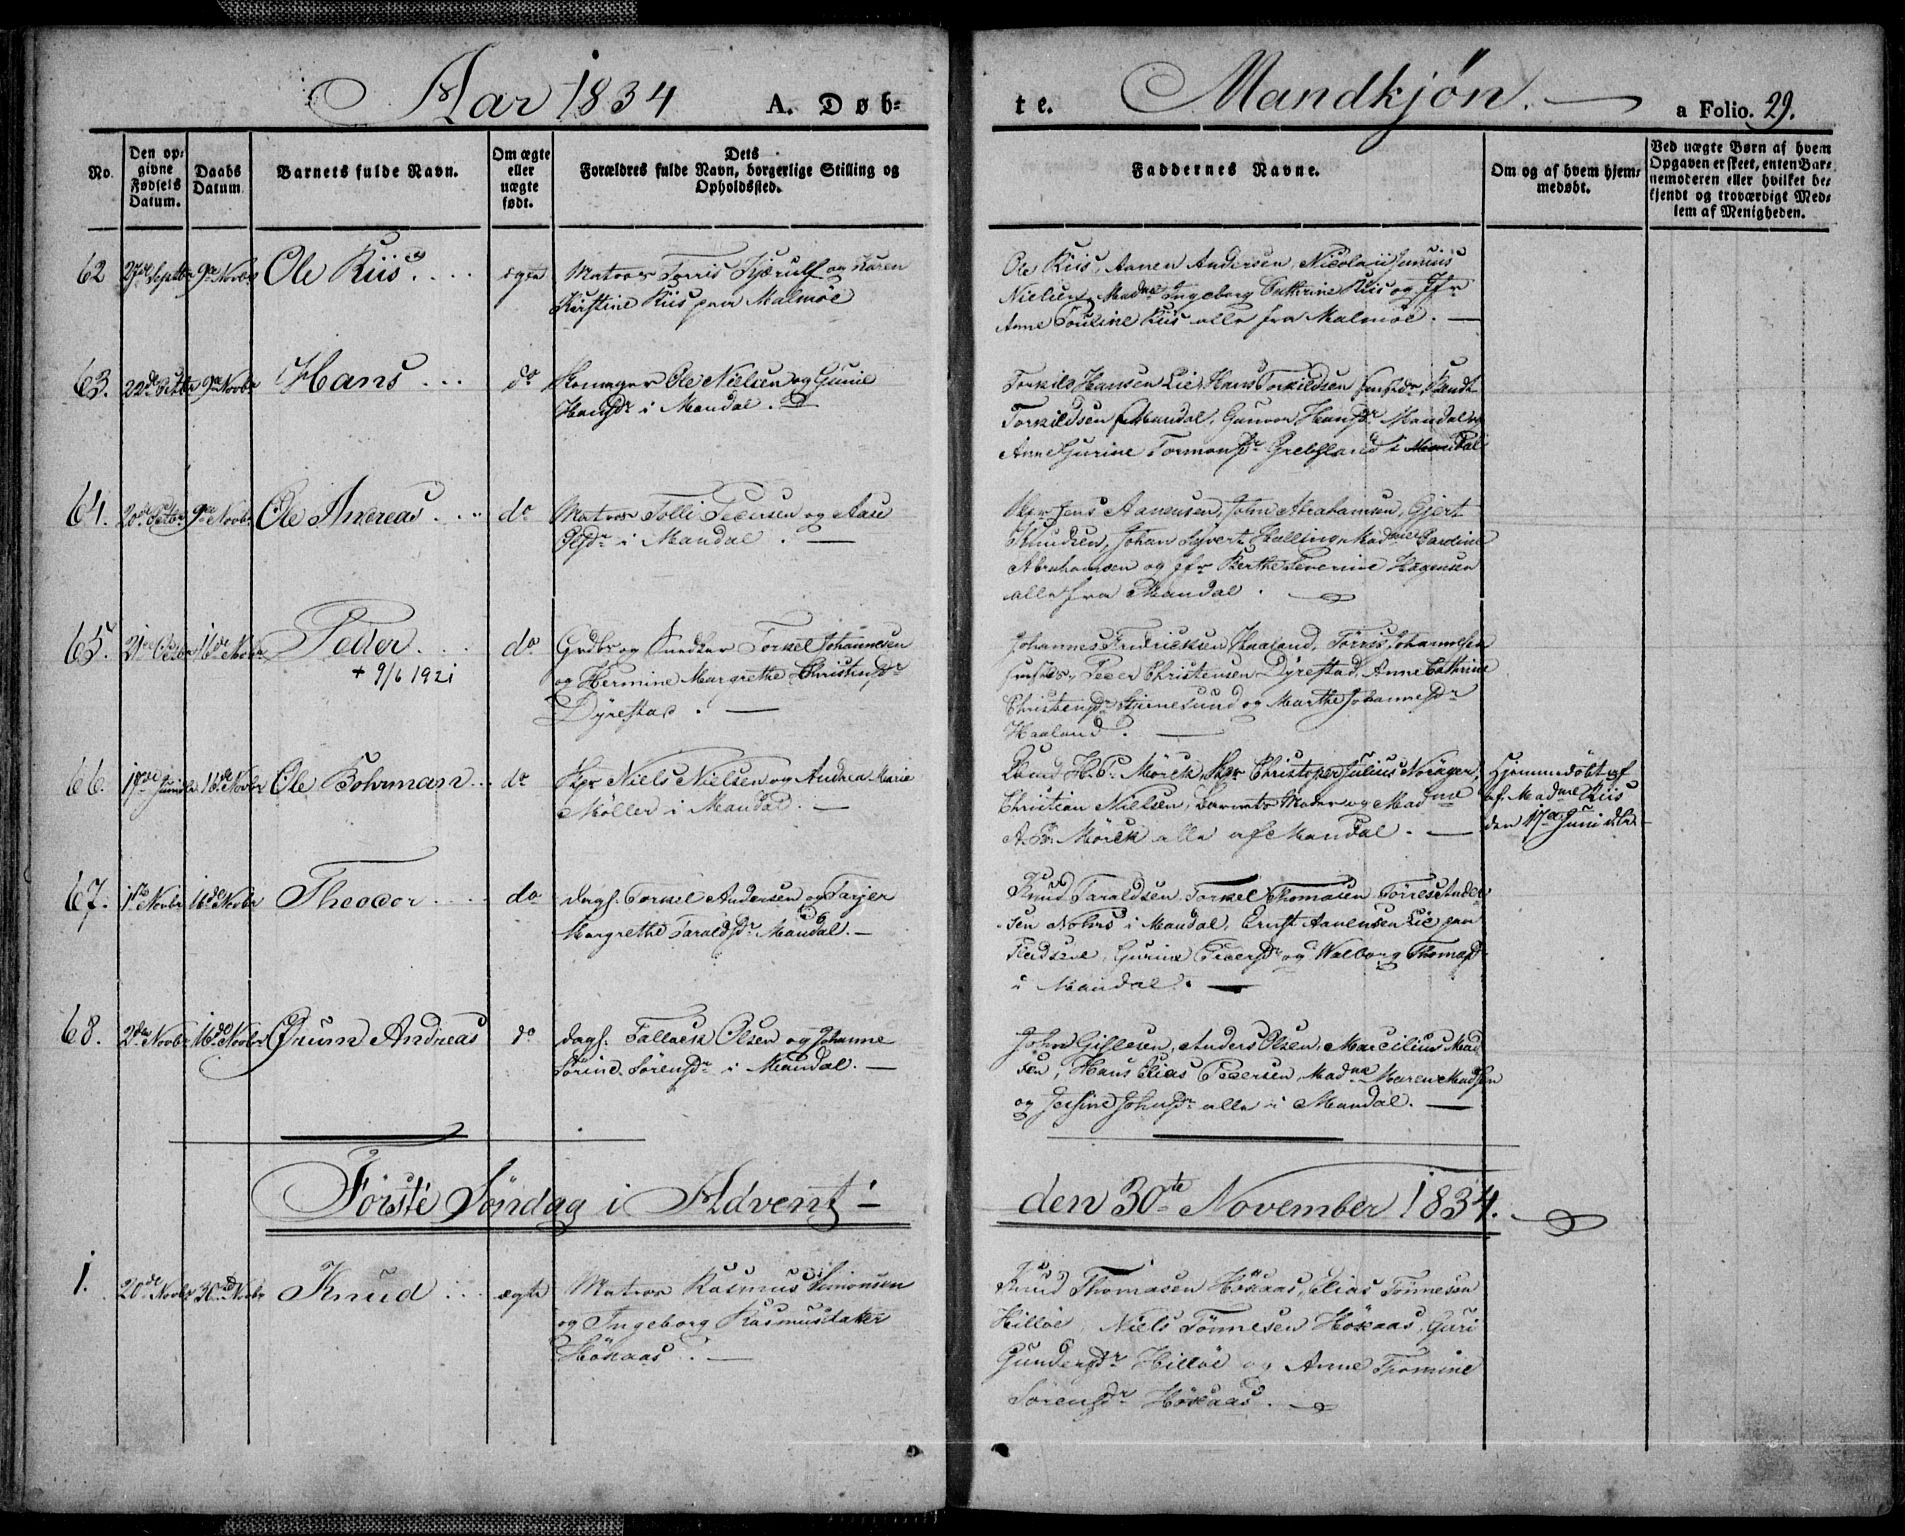 Aar 1834 A. Døb-
te. Mandkjøn. a Folio. 29.
No.
Den op-
givne
Fødsels
Datum.
Daabs
Datum
Barnets fulde Navn.
Om ægte
eller
uægte
født.
Dets
Forældres fulde Navn, borgerlige Stilling og
Opholdssted.
Faddernes Navne.
Om og af hvem hjem-
medøbt.
Ved uægte Børn af hvem
Opgaven er skeet, enten Bar-
nemoderen eller hvilket be-
kjendt og troværdigt Med-
lem af Menigheden.
62 27de Septbr 9de Novbr Ole Riis. ægte Matros Torris Fjærulf og Karen
Kirstine Riis paa Malmöe
Ole Riis, Aanen Andersen, Nicolai Junius
Nielsen, Madme Ingeborg Cathrine Riis og Jfr
Anne Pouline Riis alle fra Malmöe.
63. 22de Octbr 9de Novbr Hans do Ole Nielsen og Gunil
Hansdr i Mandal.
Torkild Hansen Lie, Hans Torkildsen
Torkildsen Mandal, Gunvor Hansdr Mandal og
Anne Gurine Tormonsdr Grebsland i Mandal
64. 20de Octbr 9de Novbr Ole Andreas do Matros Tolli Pedersen og Aase
Olsdr i Mandal.
Jens Aanensen, John Abrahamsen, Gjert
Knudsen, Johan Syvert Halling, Madme
Abrahamsen og Jfr Berthe Severine Hagensen
alle fra Mandal.
65. 21de Octbr 16de Novbr Peder. do Gdbr og Snedker Torkel Johannesen
+ 9/6 1921
og Hermine Margrethe Christensdr
Dyrestad.
Johannes Fredricksen Haaland, Törris Johannesen
Peder Christensen Dyrestad, Anne Cathrine
Christensdr Skjernesund og Marthe Johannesdr
Haaland.
66. 17de Juni 16de Novbr Ole Bohrman do Skpr Niels Nielsen og Andrea Marie
Møller i Mandal.
H. P. Mörck, Skpr Christopher Julius Norager,
Christian Nielsen, Barnets Moder og Madme
A. B. Mörck alle af Mandal.
Hjemmedöbt af
af Madme Riis
den 17de Juni
67. 1ste Novbr 16de Novbr Theodor do dags. Torkel Andersen og Tarjer
Margrethe Taraldsdr Mandal.
Knud Taraldsen, Torkel Thomasen, Törres Ander-
sen Nohns i Mandal, Ernst Aanensen Lie paa
Gurine Pedersdr og Walborg Thomasdr
i Mandal.
68. 2den Novbr 16de Novbr Ørum Andreas do dags. Tallack Olsen og Johanne
Sörine Sörensdr i Mandal.
John Gislesen, Anders Olsen, Marcilius Mad-
sen, Hans Elias Pedersen, Madme Maren Madsen
og Josine Johnsdr alle i Mandal.
Förste Söndag i Advent
den 30te November 1834.
1. 20de Novbr 30te Novbr Knud ægte Matros Rasmus Simonsen
og Ingeborg Rasmusdatter
Höxaas.
Knud Thomasen Höxaas, Elias Tönnesen
Hilløe, Niels Tönnesen Höxaas, Guri
Gundersdr Hilløe og Anne Tomine
Sörensdr Höxaas.